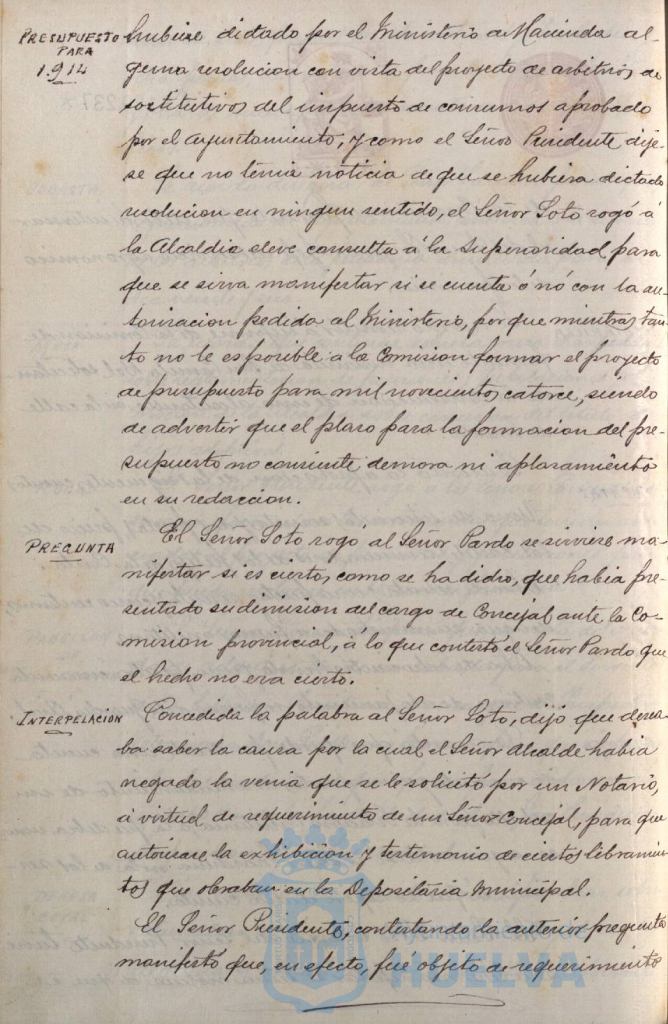 PRESUPUESTO
PARA
1.914
hubiere dictado por el Ministerio de Hacienda al-
guna resolucion con vista del proyecto de arbitrios
sustitutivos del impuesto de consumos aprobado
por el Ayuntamiento, y como el Señor Presidente dije-
se que no tenia noticia de que se hubiera dictado
resolucion en ningun sentido, el Señor Soto rogó á
la Alcaldia eleve consulta á la Superioridad para
que se sirva manifestar si se cuenta ó nó con la au-
torizacion pedida al Ministerio, por que mientras tan-
to no le es posible a la Comision formar el proyecto
de presupuesto para mil novecientos catorce, siendo
de advertir que el plaso para la formacion del pre-
supuesto no consiente demora ni aplasamiento
en su redaccion.
PREGUNTA
El Señor Soto rogó al Señor Pardo se sirviese ma-
nifestar si es cierto, como se ha dicho, que habia pre-
sentado su dimision del cargo de Concejal ante la Co-
mision provincial, á lo que contestó el Señor Pardo que
el hecho no era cierto.
INTERPELACION
Concedida la palabra al Señor Soto, dijo que desea-
ba saber la causa por la cual el Señor Alcalde habia
negado la venia que se le solicitó por un Notario,
á virtud de requerimiento de un Señor Concejal, para que
autorisase la exhibicion y testimonio de ciertos libramien-
tos que obraban en la Depositaria Municipal.
El Señor Presidente, contestando la anterior pregunta
manifestó que, en efecto, fué objeto de requerimiento
HUELVA